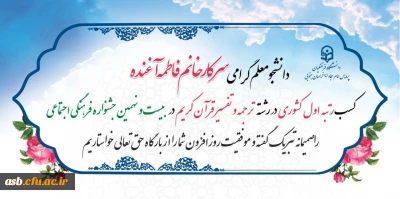 دانشجو معلم گرامی سرکار خانم فاطمه آغنده
کسب رتبه اول کشوری در رشته ترجمه و تفسیر قرآن کریم در بیست و نهمین جشنواره فرهنگی اجتماعی
را صمیمانه تبریک گفته و موفقیت روز افزون شما را از بارگاه حق تعالی خواستاریم
asb.cfu.ac.ir